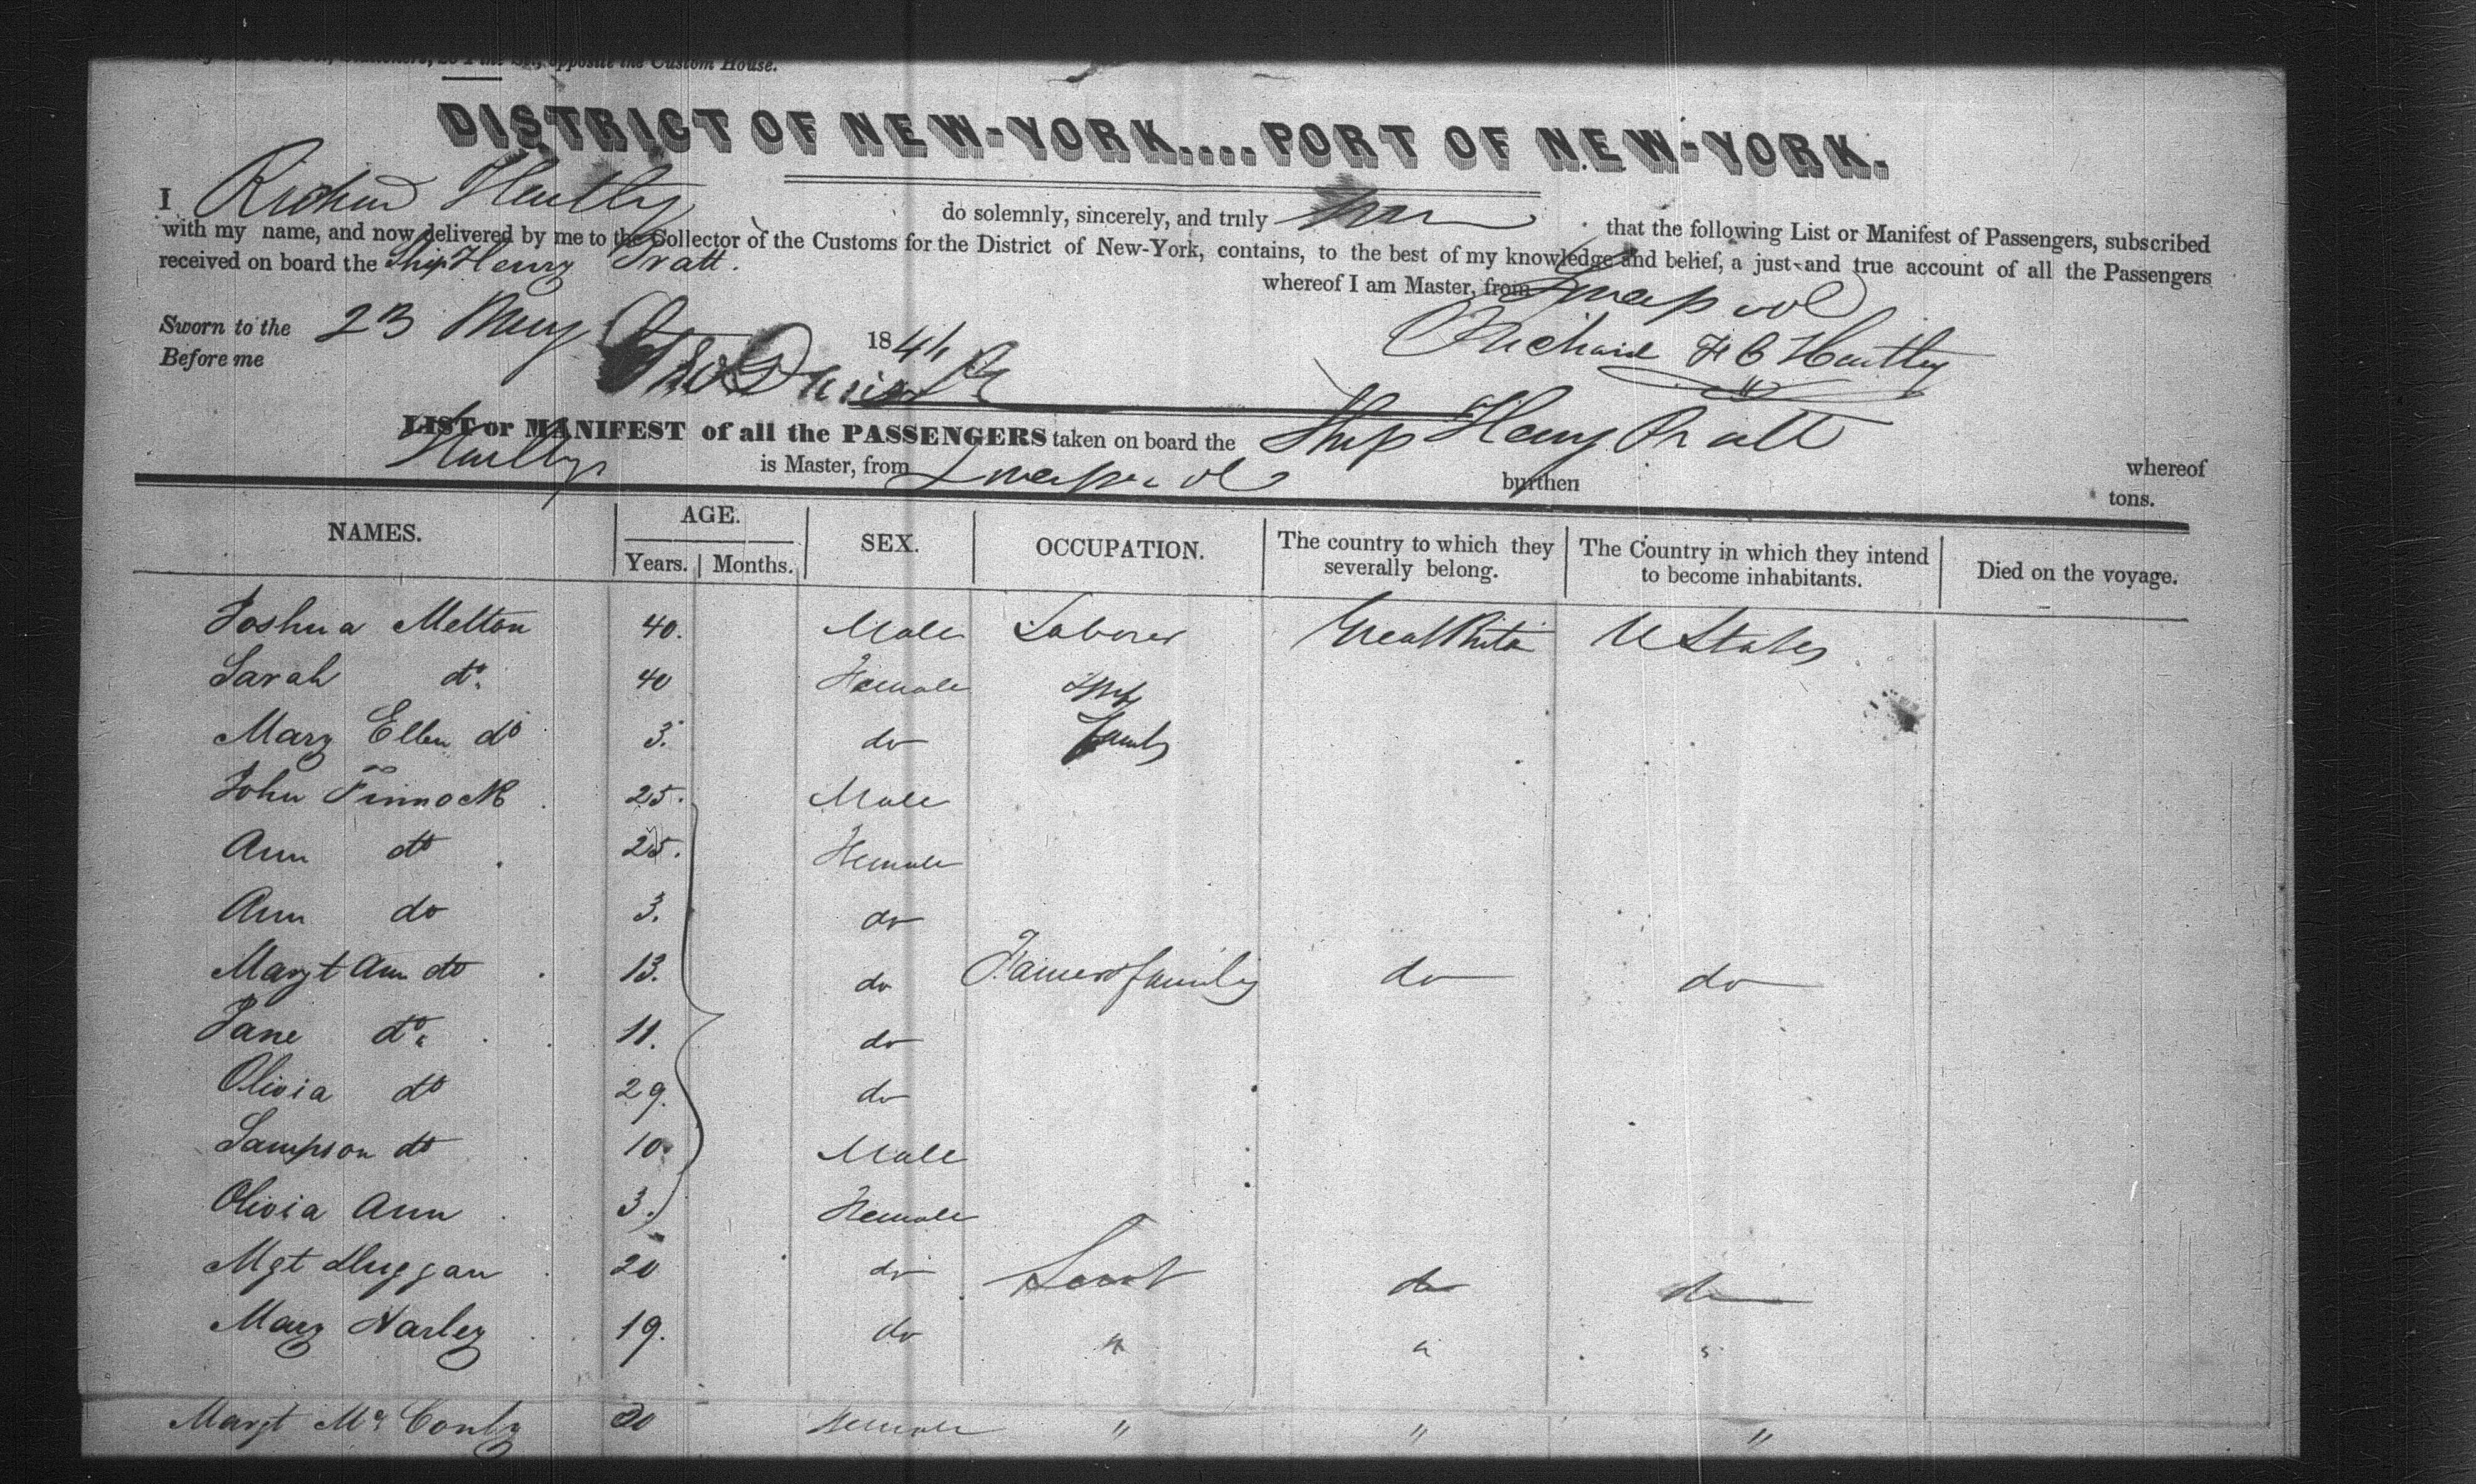 opposite the Custom House.
DISTRICT OF NEW-YORK....PORT OF NEW-YORK.
I Richard Hartley do solemnly, sincerely, and truly swear that the following List or Manifest of Passengers, subscribed
with my name, and now delivered by me to the Collector of the Customs for the District of New-York, contains, to the best of my knowledge and belief, a just and true account of all the Passengers
received on board the Ship Henry Pratt. whereof I am Master, from Liverpool
Sworn to the 23 May 1844
Before me
Richard Hartley
LIST or MANIFEST of all the PASSENGERS taken on board the Ship Henry Pratt whereof
Hartley is Master, from Liverpool burthen tons.
NAMES. AGE. SEX. OCCUPATION. The country to which they severally belong. The Country in which they intend to become inhabitants. Died on the voyage.
Years. Months.
Joshua Melton 40. Male Laborer Great Brita U States
Sarah do. 40 Female Wife
Mary Ellen do 3. do Family
John Pinnock 25. Male
Ann do 25. Female
Ann do 3. do
Margt Ann do 13. do Farmers family do do
Jane do. 11. do
Olivia do 29. do
Sampson do 10. Male
Olivia Ann 3. Female
Mgt Duggan 20 do Servt do do
Mary Harley 19. do " " "
Margt Mc Conly 20 Female " " "